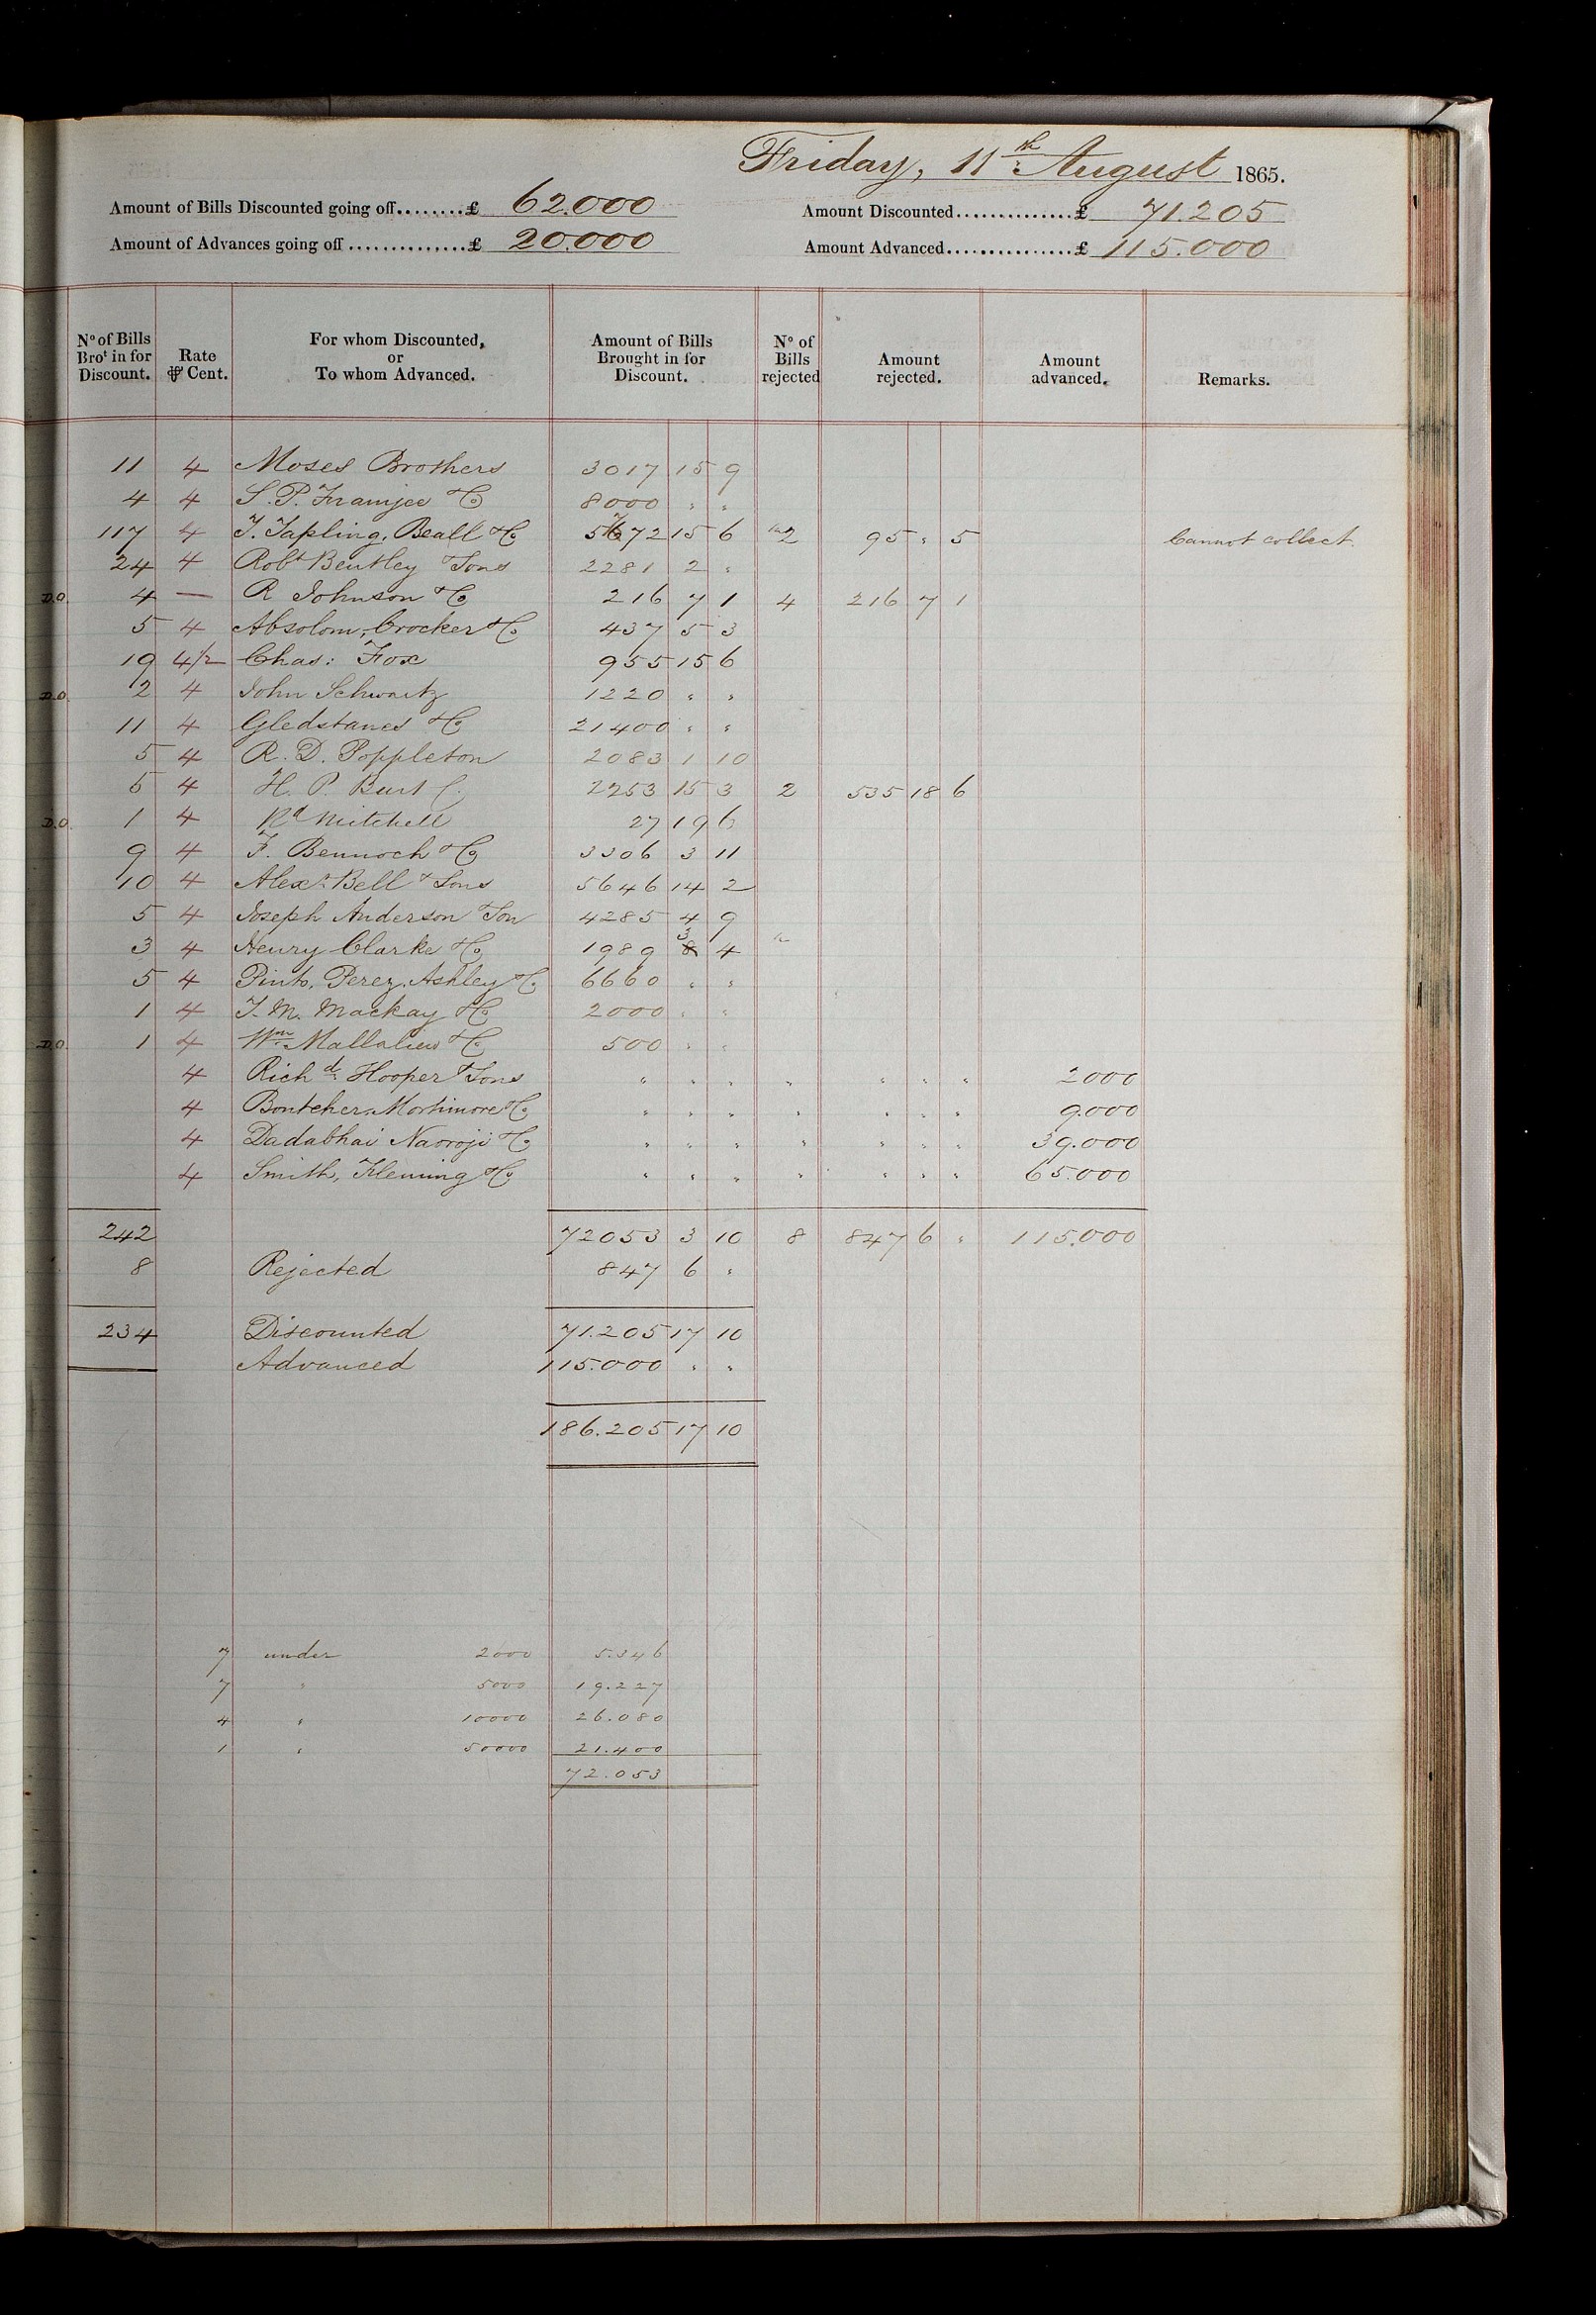 Friday, 11th August 1865.
Amount of Bills Discounted going off........£ 62.000 Amount Discounted..............£ 71.205
Amount of Advances going off..............£ 20.000 Amount Advanced...............£ 115.000
No of Bills Brot in for Discount. Rate ⅌ Cent. For whom Discounted, or To whom Advanced. Amount of Bills Brought in for Discount. No of Bills rejected Amount rejected. Amount advanced. Remarks.
11 4 Moses Brothers 3017 15 9
4 4 S. P. Framjee & Co 8000 " "
117 4 T. Tapling, Beall & Co 5772 15 6 2 95 " 5 Cannot collect.
24 4 Robt Bentley & Sons 2281 2 "
D.O. 4 — R Johnson & Co 216 7 1 4 216 7 1
5 4 Absolom, Crocker & Co 437 5 3
19 4½ Chas: Fox 955 15 6
D.O. 2 4 John Schwartz 1220 " "
11 4 Gledstanes & Co 21400 " "
5 4 R. D. Poppleton 2083 1 10
5 4 H. P. Burt 2253 15 3 2 535 18 6
D.O. 1 4 Rd Mitchell 27 19 6
9 4 F. Bennoch & Co 3306 3 11
10 4 Alexr Bell & Sons 5646 14 2
5 4 Joseph Anderson & Son 4285 4 9
3 4 Henry Clarke & Co 1989 3 4
5 4 Pinto, Perez, Ashley & Co 6660 " "
1 4 T. M. Mackay & Co 2000 " "
D.O. 1 4 Wm Mallalieu & Co 500 " "
4 Richd Hooper & Sons " " " " " " " 2000
4 Boutcher, Mortimore & Co " " " " " " " 9.000
4 Dadabhai Naoroji & Co " " " " " " " 39.000
4 Smith, Fleming & Co " " " " " " " 65.000
242 72053 3 10 8 847 6 " 115.000
8 Rejected 847 6 "
234 Discounted 71.205 17 10
Advanced 115.000 " "
186.205 17 10
7 under 2000 5.346
7 " 5000 19.227
4 " 10000 26.080
1 " 50000 21.400
72.053